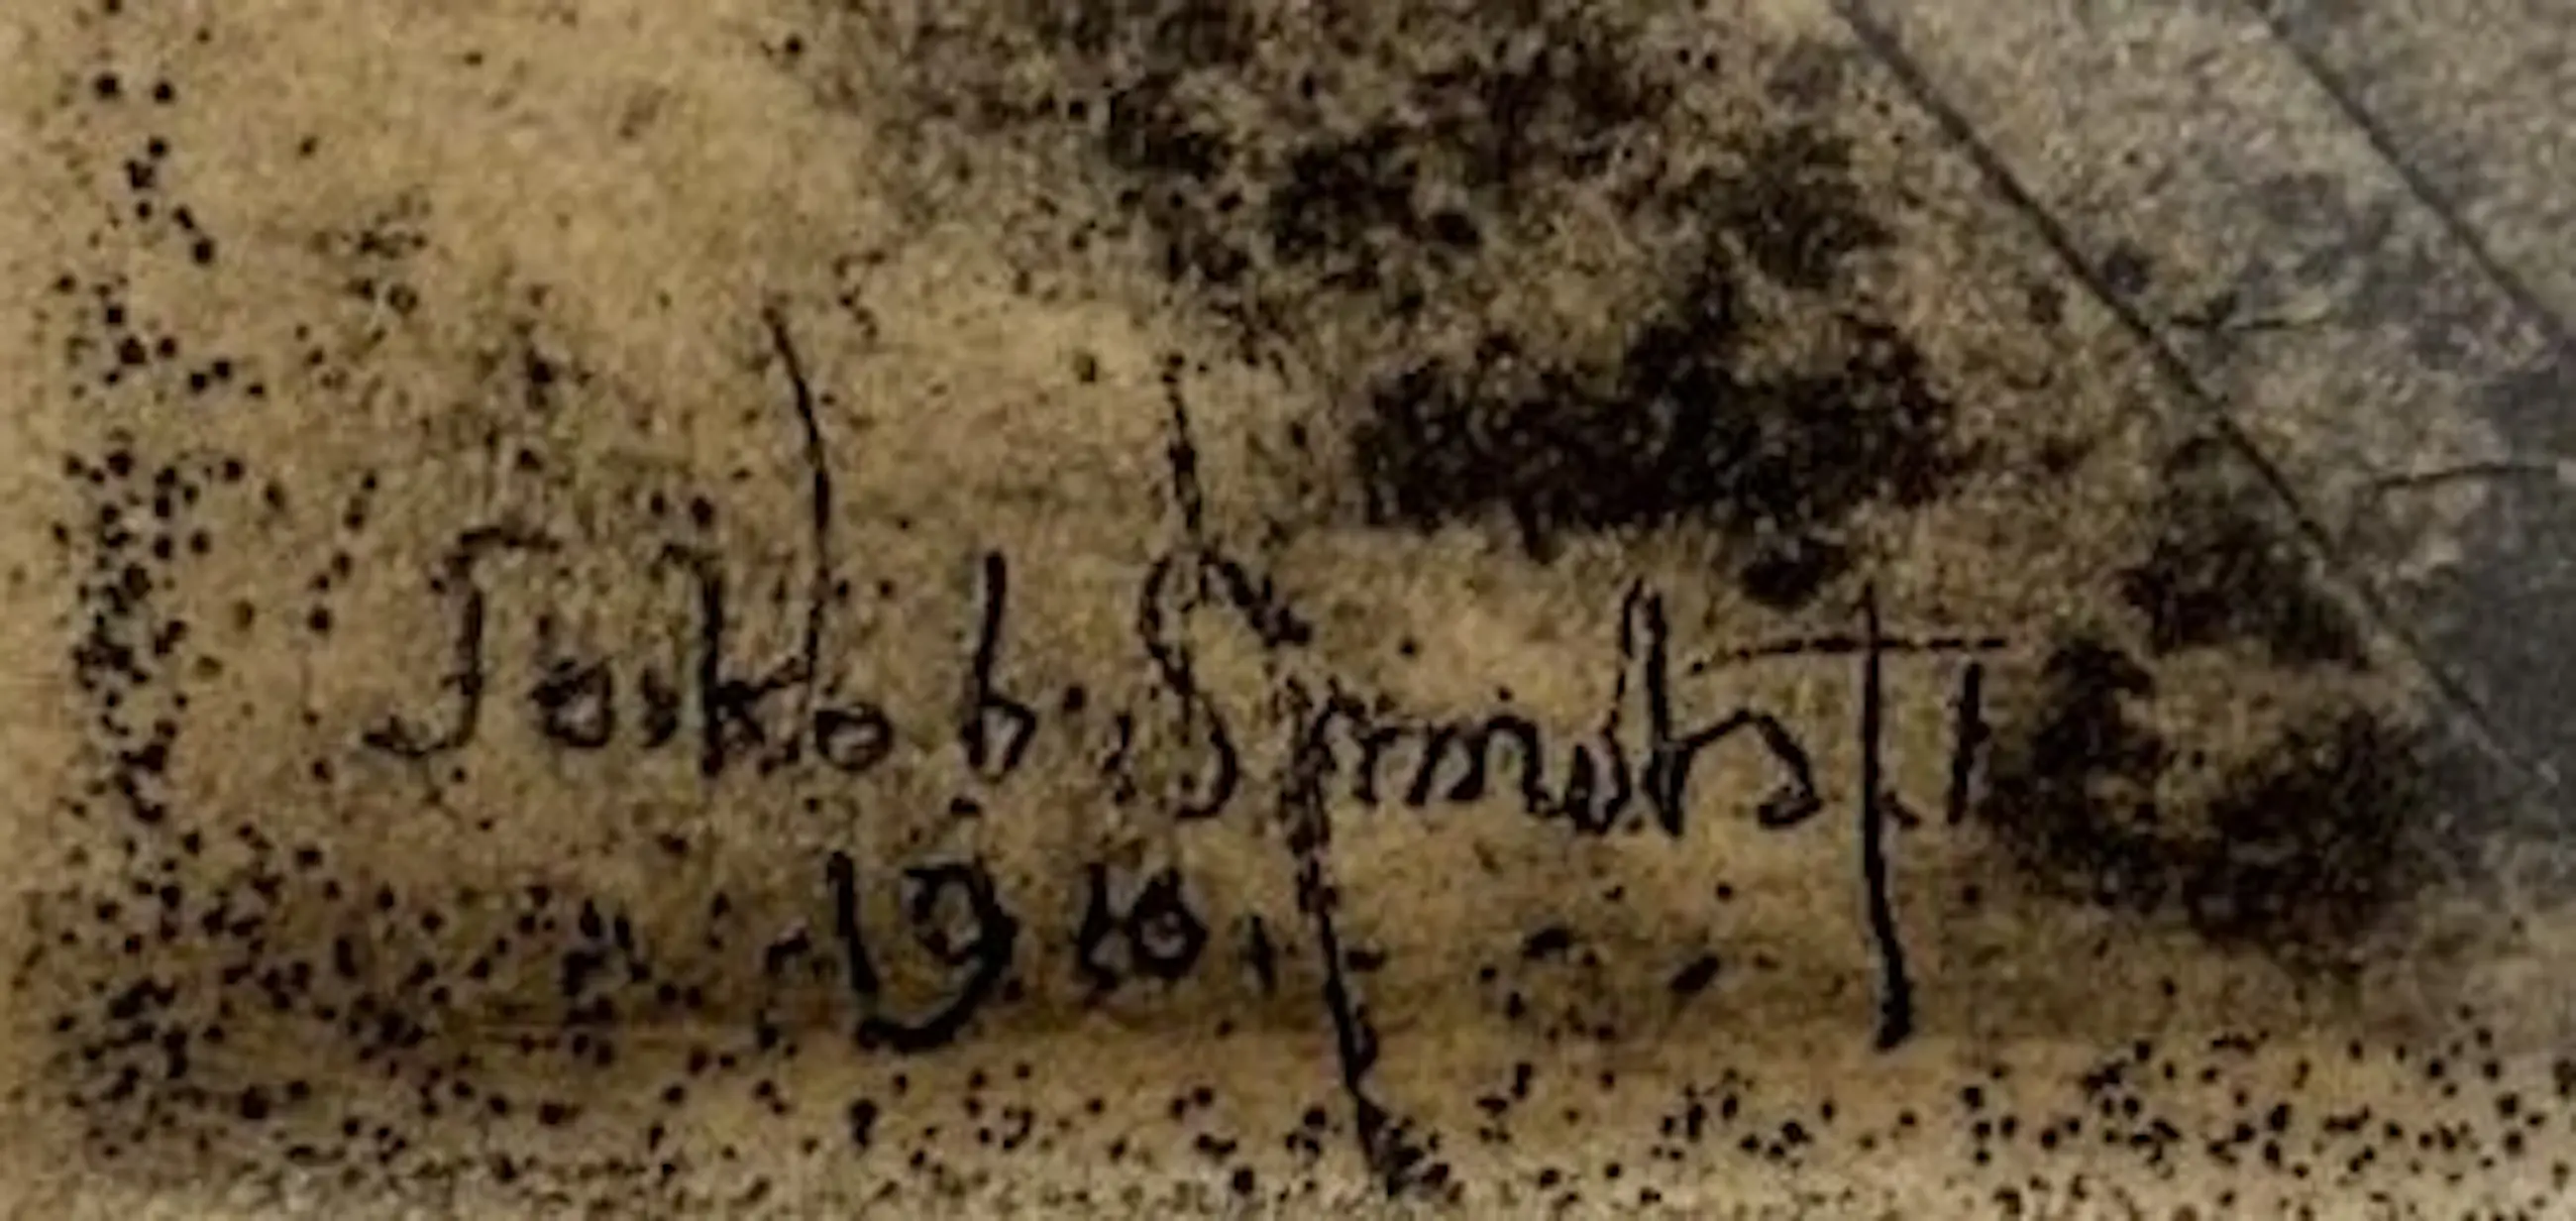 Jakob Smits
19